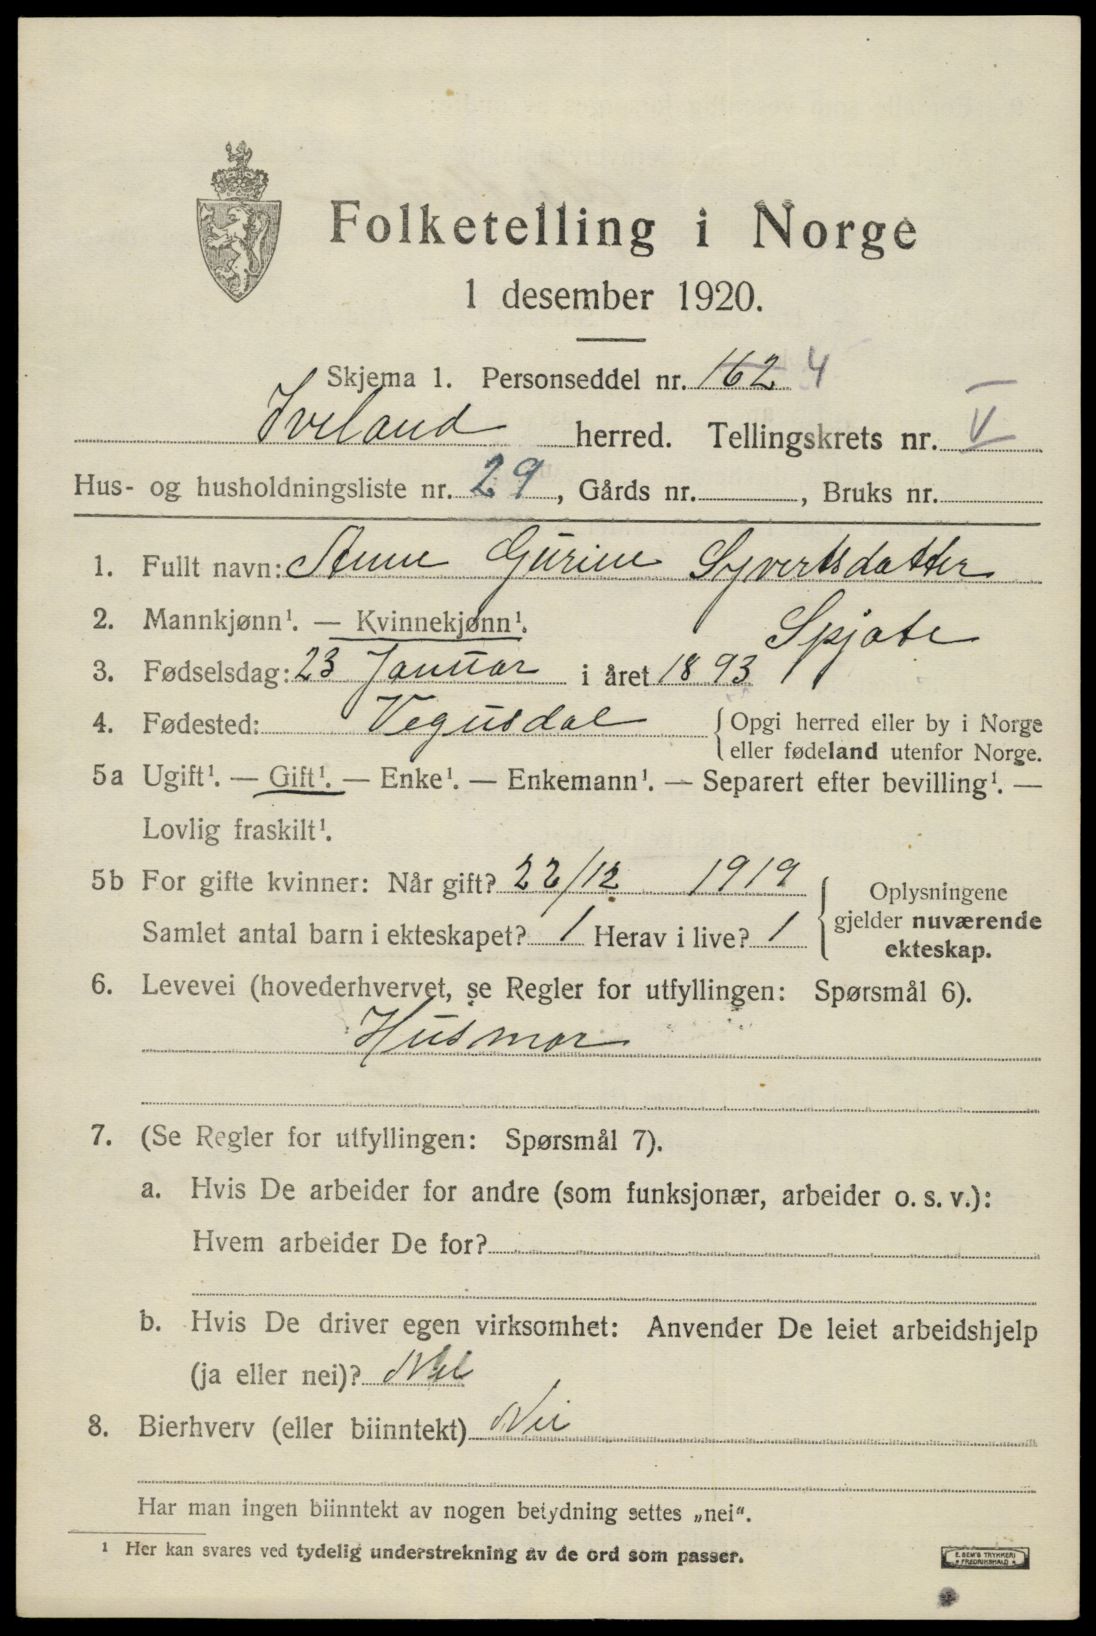 Folketelling i Norge
1 desember 1920.
Skjema 1. Personseddel nr. 162 4
Iveland herred. Tellingskrets nr. V
Hus- og husholdningsliste nr. 29, Gårds nr. , Bruks nr.
1. Fullt navn: Anne Gurine Syvertsdatter
2. Mannkjønn¹. — Kvinnekjønn¹. Spjote
3. Fødselsdag: 23 Januar i året 1893
4. Fødested: Vegusdal { Opgi herred eller by i Norge
eller fødeland utenfor Norge.
5a Ugift¹. — Gift¹. — Enke¹. — Enkemann¹. — Separert efter bevilling¹. —
Lovlig fraskilt¹.
5b For gifte kvinner: Når gift? 22/12 1919
Samlet antal barn i ekteskapet? 1 Herav i live? 1
Oplysningene
gjelder nuværende
ekteskap.
6. Levevei (hovederhvervet, se Regler for utfyllingen: Spørsmål 6).
Husmor
7. (Se Regler for utfyllingen: Spørsmål 7).
a. Hvis De arbeider for andre (som funksjonær, arbeider o. s. v.):
Hvem arbeider De for?
b. Hvis De driver egen virksomhet: Anvender De leiet arbeidshjelp
(ja eller nei)? Nei
8. Bierhverv (eller biinntekt) Nei
Har man ingen biinntekt av nogen betydning settes „nei".
¹ Her kan svares ved tydelig understrekning av de ord som passer.
E. SEM'S TRYKKERI
FREDRIKSHALD